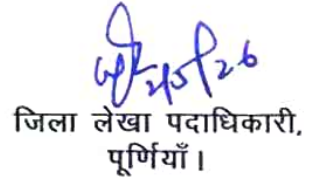 जिला लेखा पदाधिकारी,
पूर्णियाँ।